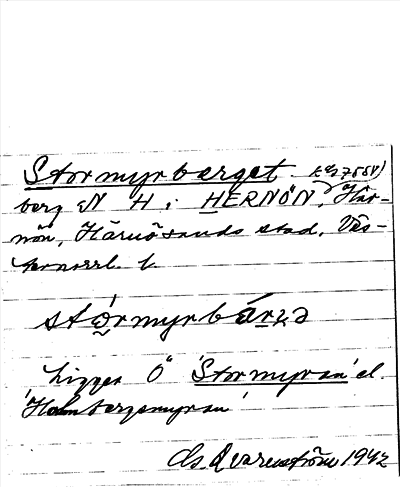 Stormyrberget
berg N H i HERNÖN, Här-
nön, Härnösands stad, Väs-
ternorrl. l.
stórmyrbárɡə
Ligger Ö 'Stormyran' el.
'Holmbergsmyran'
Cs Qvarnström 1942